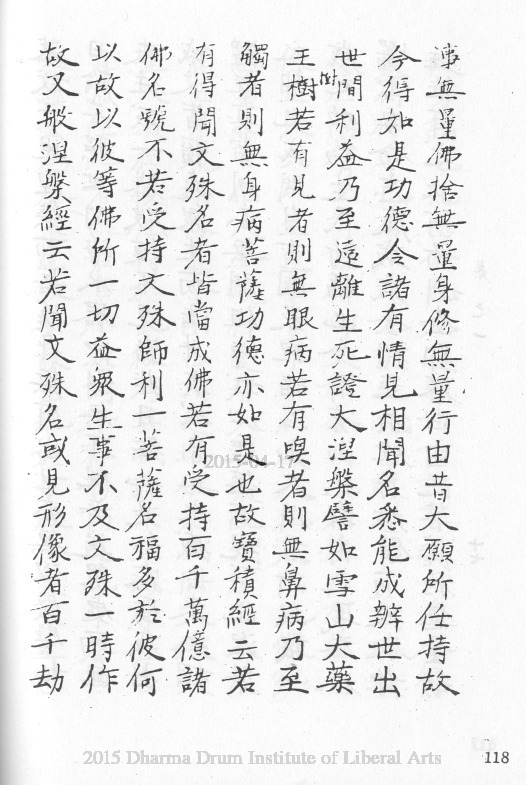 事無量佛捨無量身修無量行由昔大願所任持故
今得如是功德令諸有情見相聞名悉能成辦世出
世間利益乃至遠離生死證大涅槃譬如雪山大藥
王樹若有見者則無眼病若有嗅者則無鼻病乃至
觸者則無身病菩薩功德亦如是也故寶積經云若
有得聞文殊名者皆當成佛若有受持百千萬億諸
佛名號不若受持文殊師利一菩薩名福多於彼何
以故以彼等佛所一切益衆生事不及文殊一時作
故又般涅槃經云若聞文殊名或見形像者百千劫
2015-04-17
2015 Dharma Drum Institute of Liberal Arts
118